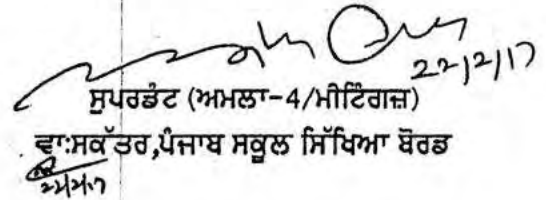 22/2/17
ਸੁਪਰਡੰਟ (ਅਮਲਾ-4/ਮੀਟਿੰਗਜ਼)
ਵਾ:ਸਕੱਤਰ,ਪੰਜਾਬ ਸਕੂਲ ਸਿੱਖਿਆ ਬੋਰਡ
22/2/17